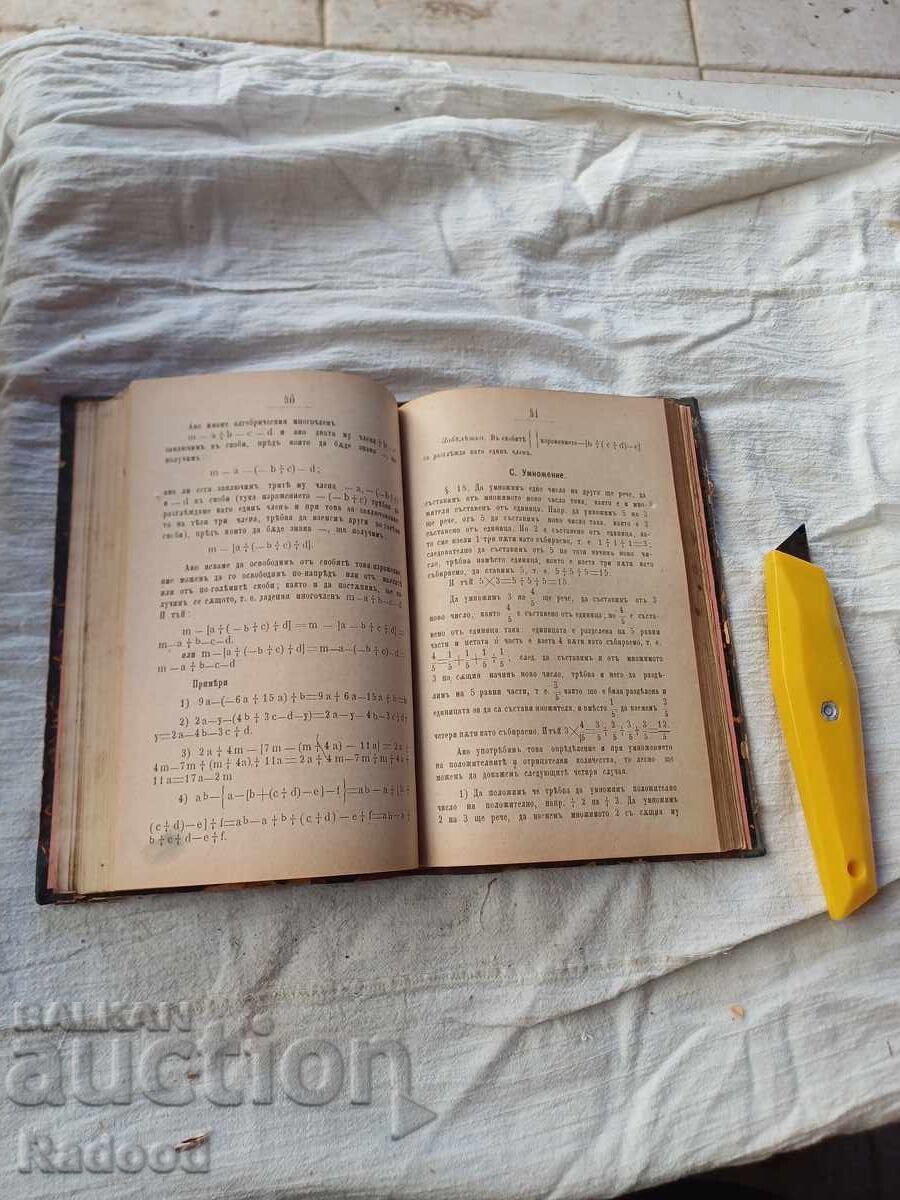 30
Ако имаме алгебрическия многочленъ
m — a + b — c — d и ако двата му члена + b —
заключимъ въ скоби, прѣдъ които да бѫде знака —, ще
получимъ
m — a — (— b + c) — d;
ако ли сега заключимъ тритѣ му члена — a, — (— b + c)
и — d въ скоби (тука изражението — (— b + c) трѣбва да
разглеждаме като единъ членъ и при това за заключаване-
то на тѣзи три члена, трѣбва да вземемъ други по-голѣми
скоби), прѣдъ които да бѫде знака —, ще получимъ
m — [a + (— b + c) + d].
Ако искаме да го освободимъ отъ скобитѣ това изражение
ние можемъ да го освободимъ по-напрѣдъ или отъ малкитѣ
или отъ по-голѣмитѣ скоби; както и да постѫпимъ, ще по-
лучимъ се сѫщото, т. е. дадения многочленъ m — a + b — c — d
И тъй:
m — [a + (— b + c) + d] = m — ]a — b + c + d] =
m — a + b — c — d.
или m — [a + (— b + c) + d] = m — a — (— b + c) — d =
m — a + b — c — d
Примѣри
1) 9a — (— 6a + 15a) + b = 9a + 6a — 15a + b =
2) 2a — y — (4b + 3c — d — y) = 2a — y — 4b — 3c + d +
y = 2a — 4b — 3c + d.
3) 2a + 4m — [7m — (m + 4a) — 11a] = 2a +
4m — 7m + (m + 4a) + 11a = 2a + 4m — 7m + m +
11a = 17a — 2m
4) ab — {a — [b + (c + d) — e] — f} = ab — a + [b +
(c + d) — e] + f = ab — a + b + (c + d) — e + f = ab — a +
b + c + d — e + f.
31
Забѣлѣжка. Въ скобитѣ { } изражението — [b + (c + d) — e]
се разглежда като единъ членъ.
C. Умножение
§ 18. Да умножимъ едно число на друго ще рече, да
съставимъ отъ множимото ново число така, както е и мно-
жителя съставенъ отъ единица. Напр. да умножимъ 5 на 3
ще рече, отъ 5 да съставимъ ново число така, както е 3
съставено отъ единица. Но 3 е съставено отъ единица, ка-
то сме взели 1 три пѫти като събираемо, т. е. 1 + 1 + 1 = 3;
слѣдователно да съставимъ отъ 5 по този начинъ ново чи-
сло, трѣбва пакъ нето 5 да вземемъ три пѫти като
събираемо, да ставимъ 5, т. е. 5 + 5 + 5 = 15.
И тъй 5 × 3 = 5 + 5 + 5 = 15.
Да умножимъ 3 на 4/5 ще рече, да съставимъ отъ 3
ново число, както 4/5 е съставено отъ единица; но 4/5 е съста-
вено отъ единица така: единицата е раздѣлена на 5 равни
части и петата ѝ часть е взета 4 пѫти като събираемо, т. е.
4/5 = 1/5 + 1/5 + 1/5 + 1/5, слѣд. да съставимъ и отъ множимото
3 на сѫщия начинъ ново число, трѣбва и него да раздѣ-
лимъ на 5 равни части, т. е. 3/5 както ще и била раздѣлена и
единицата за да се състави множителя, и вмѣсто 1/5 да вземемъ 3/5
четери пѫти като събираемо. И тъй 3 × 4/5 = 3/5 + 3/5 + 3/5 + 3/5 = 12/5.
Ако употрѣбимъ това опрѣдѣление и при умножението
на положителнитѣ и отрицателни количества, то лесно ще
можемъ да докажемъ слѣдующитѣ четири случая.
1) Да положимъ че трѣбва да умножимъ положително
число на положително, напр. + 2 на + 3. Да умножимъ
2 на 3 ще рече, да вземемъ множимото 2 съ сѫщия му
BALKAN
auction
Radood